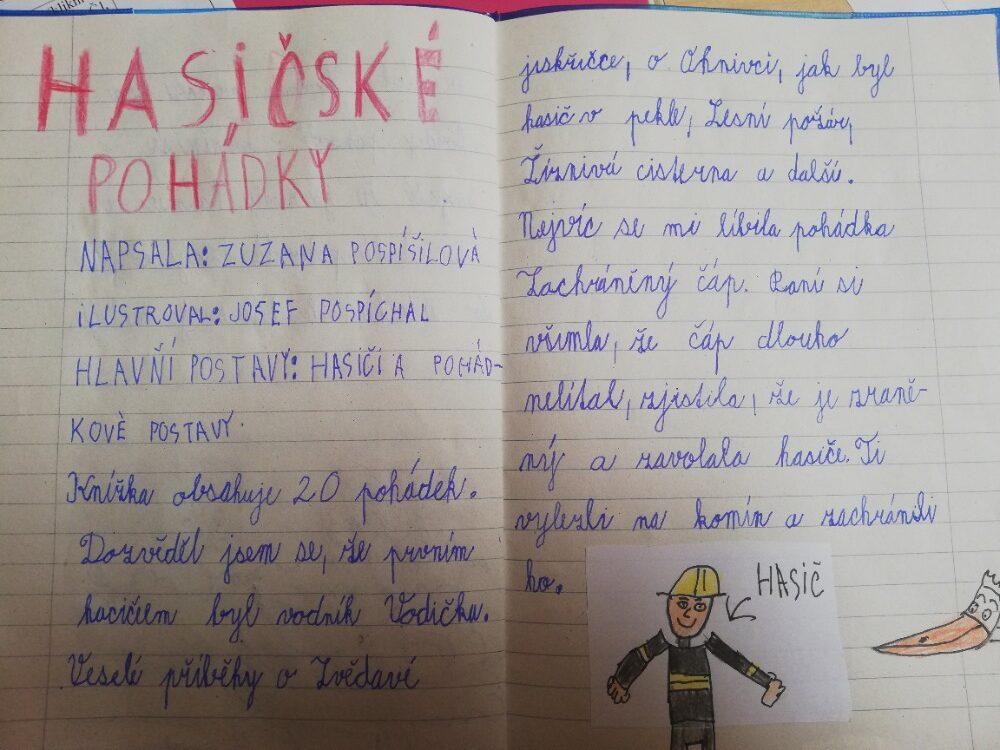 HASIČSKÉ
POHÁDKY
NAPSALA: ZUZANA POSPÍŠILOVÁ
ILUSTROVAL: JOSEF POSPÍCHAL
HLAVŇÍ POSTAVY: HASIČI A POHÁD-
KOVÉ POSTAVY.
Knížka obsahuje 20 pohádek.
Dozvěděl jsem se, že prvním
hasičem byl vodník Vodička.
Veselé příběhy o Zvědavé
jiskřičce, o Ohnivci, jak byl
hasič v pekle, Lesní požár,
Žíznivá cisterna a další.
Nejvíc se mi líbila pohádka
Zachráněný čáp. Paní si
všimla, že čáp dlouho
nelítal, zjistila, že je zraně-
ný a zavolala hasiče. Ti
vylezli na komín a zachránili
ho.
HASIČ